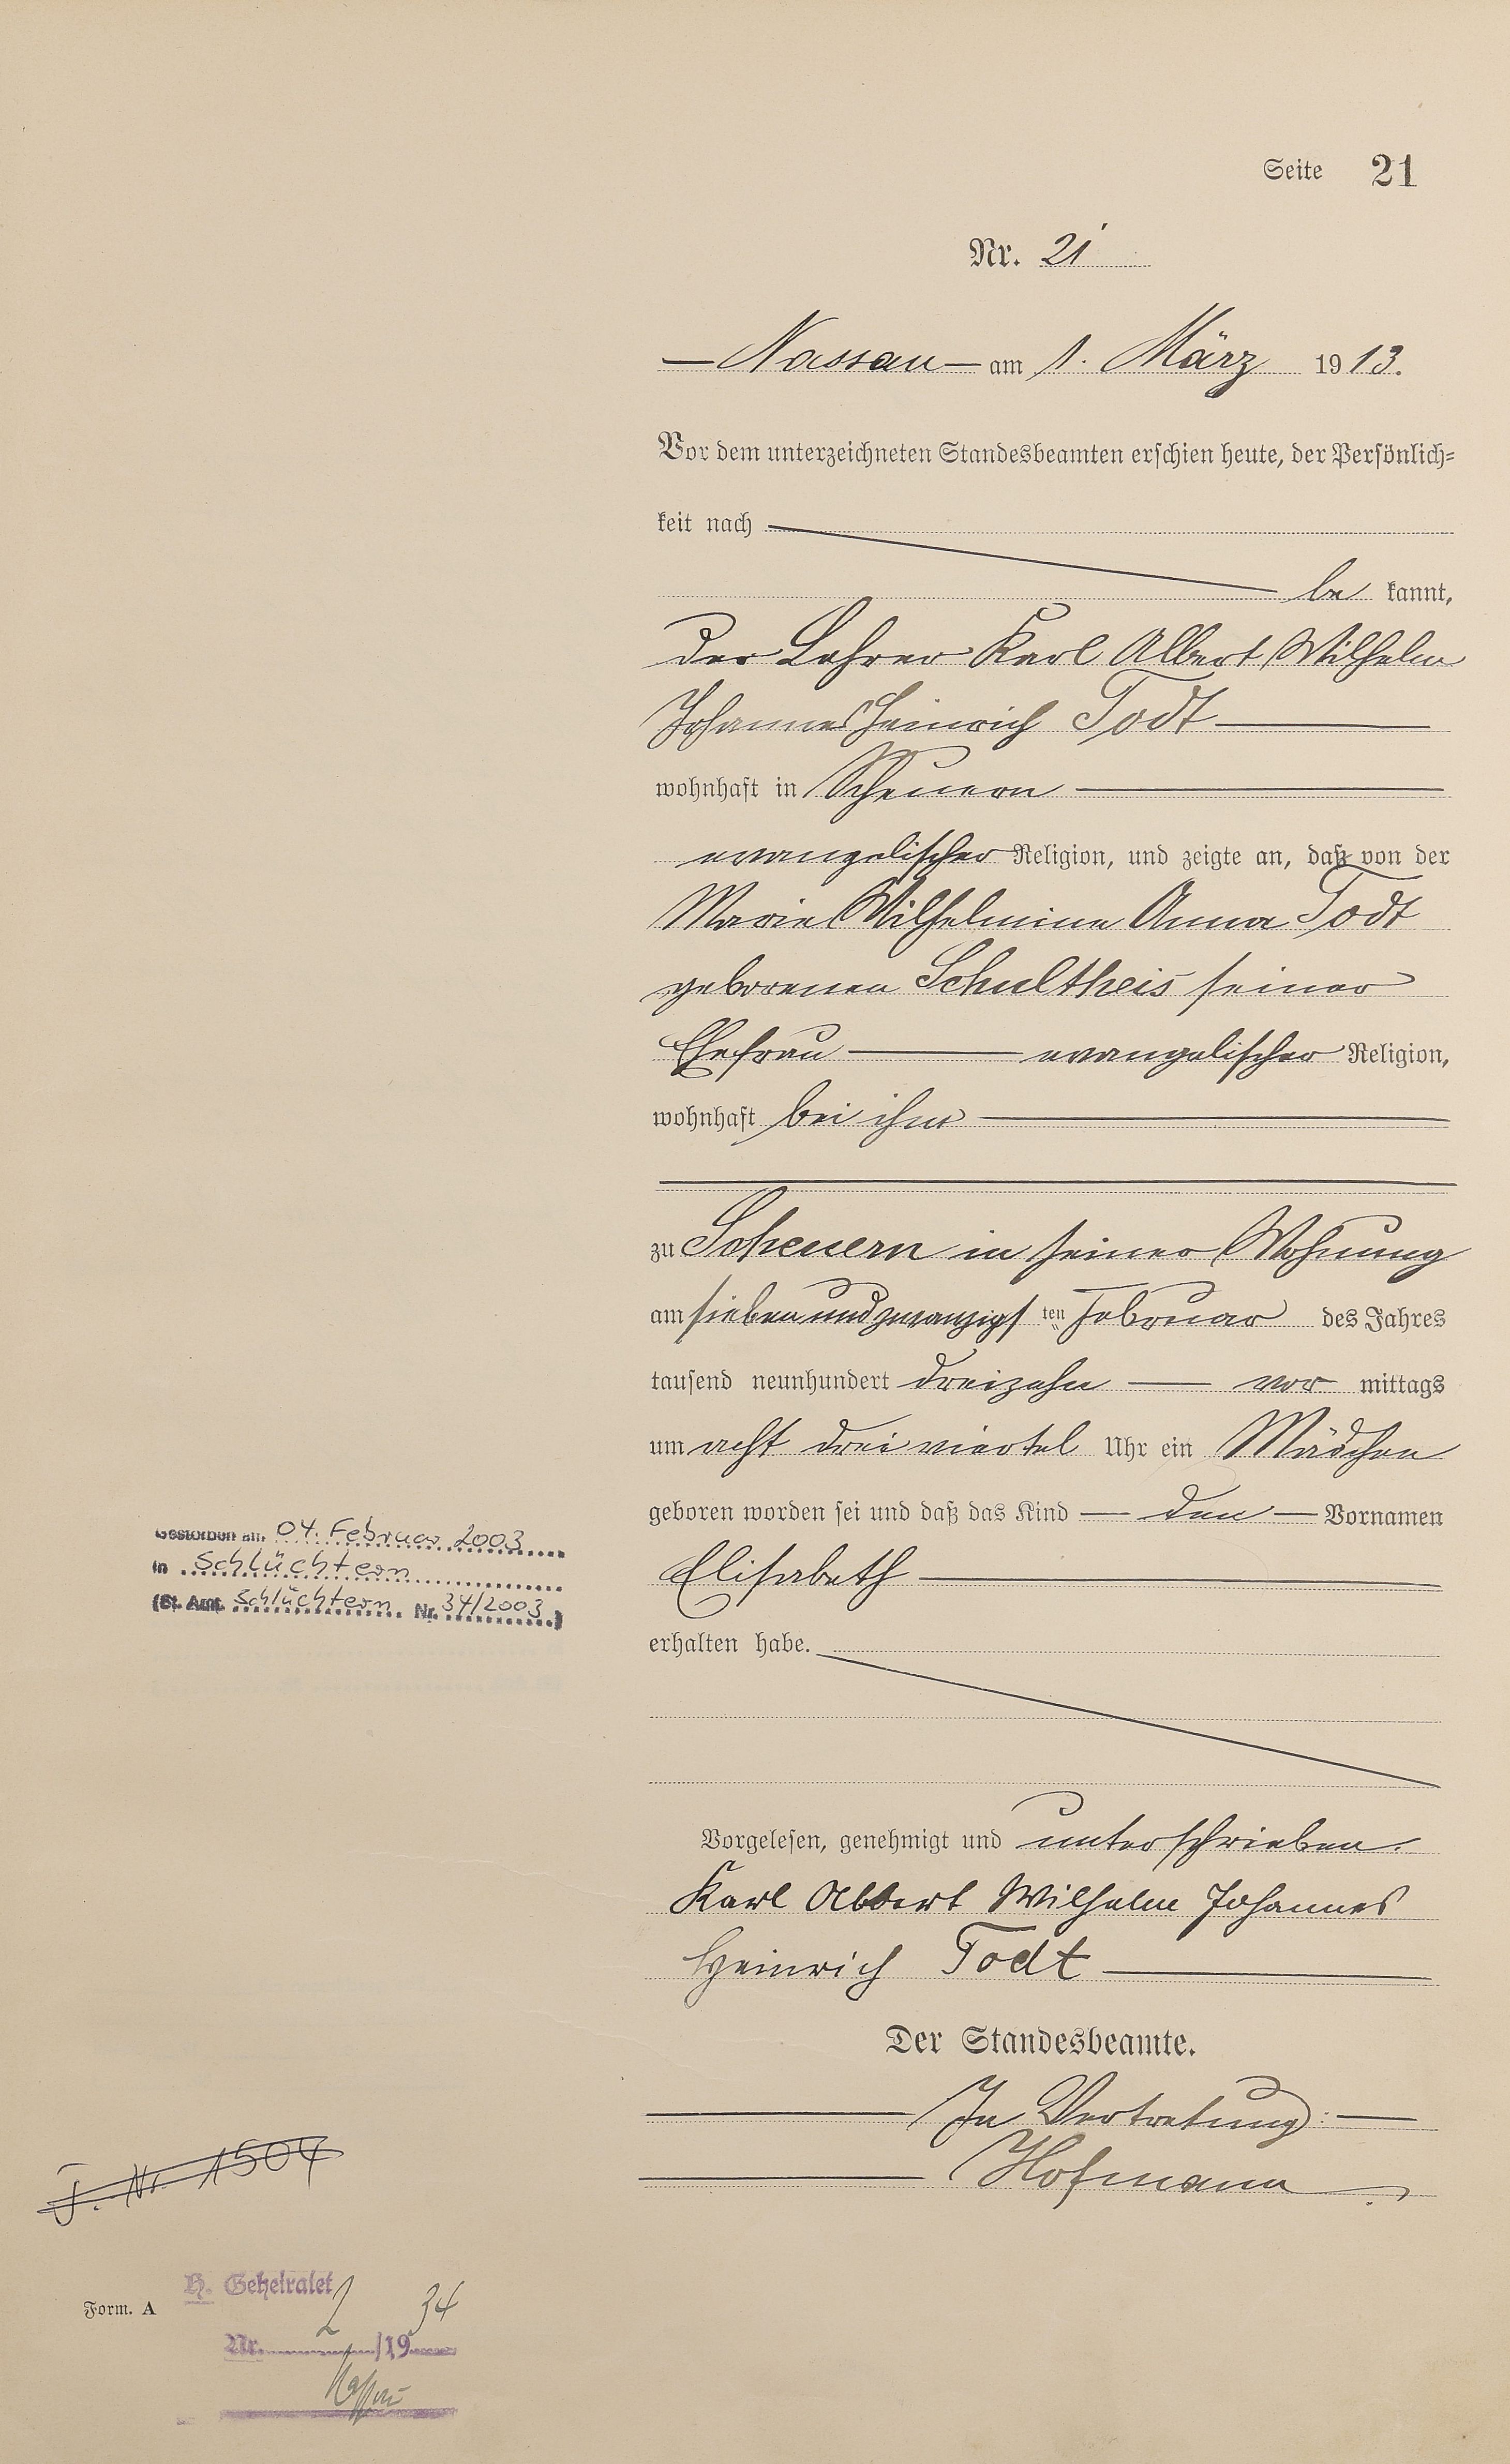 Seite 21
Nr. 21
Nassau am 1. März 1913.
Vor dem unterzeichneten Standesbeamten erschien heute, der Persönlich=
keit nach
be kannt,
der Lehrer Karl Albert Wilhelm
Johannes Heinrich Todt
wohnhaft in Scheuern
evangelischer Religion, und zeigte an, daß von der
Marie Wilhelmine Anna Todt
geborenen Schultheis seiner
Ehefrau evangelischer Religion,
wohnhaft bei ihm
zu Scheuern in seiner Wohnung
am siebenundzwanzigsten Februar des Jahres
tausend neunhundert dreizehn vor mittags
um acht drei viertel Uhr ein Mädchen
geboren worden sei und daß das Kind den Vornamen
Elisabeth
erhalten habe.
Vorgelesen, genehmigt und unterschrieben.
Karl Albert Wilhelm Johannes
Heinrich Todt
Der Standesbeamte.
In Vertretung:
Hofmann
Gestorben am 04. Februar 2003
in Schlüchtern
(St. Amt. Schlüchtern Nr. 34/2003)
J. Nr. 1504
H. Geheiratet
Form. A
Nr. 2/1934
Nassau